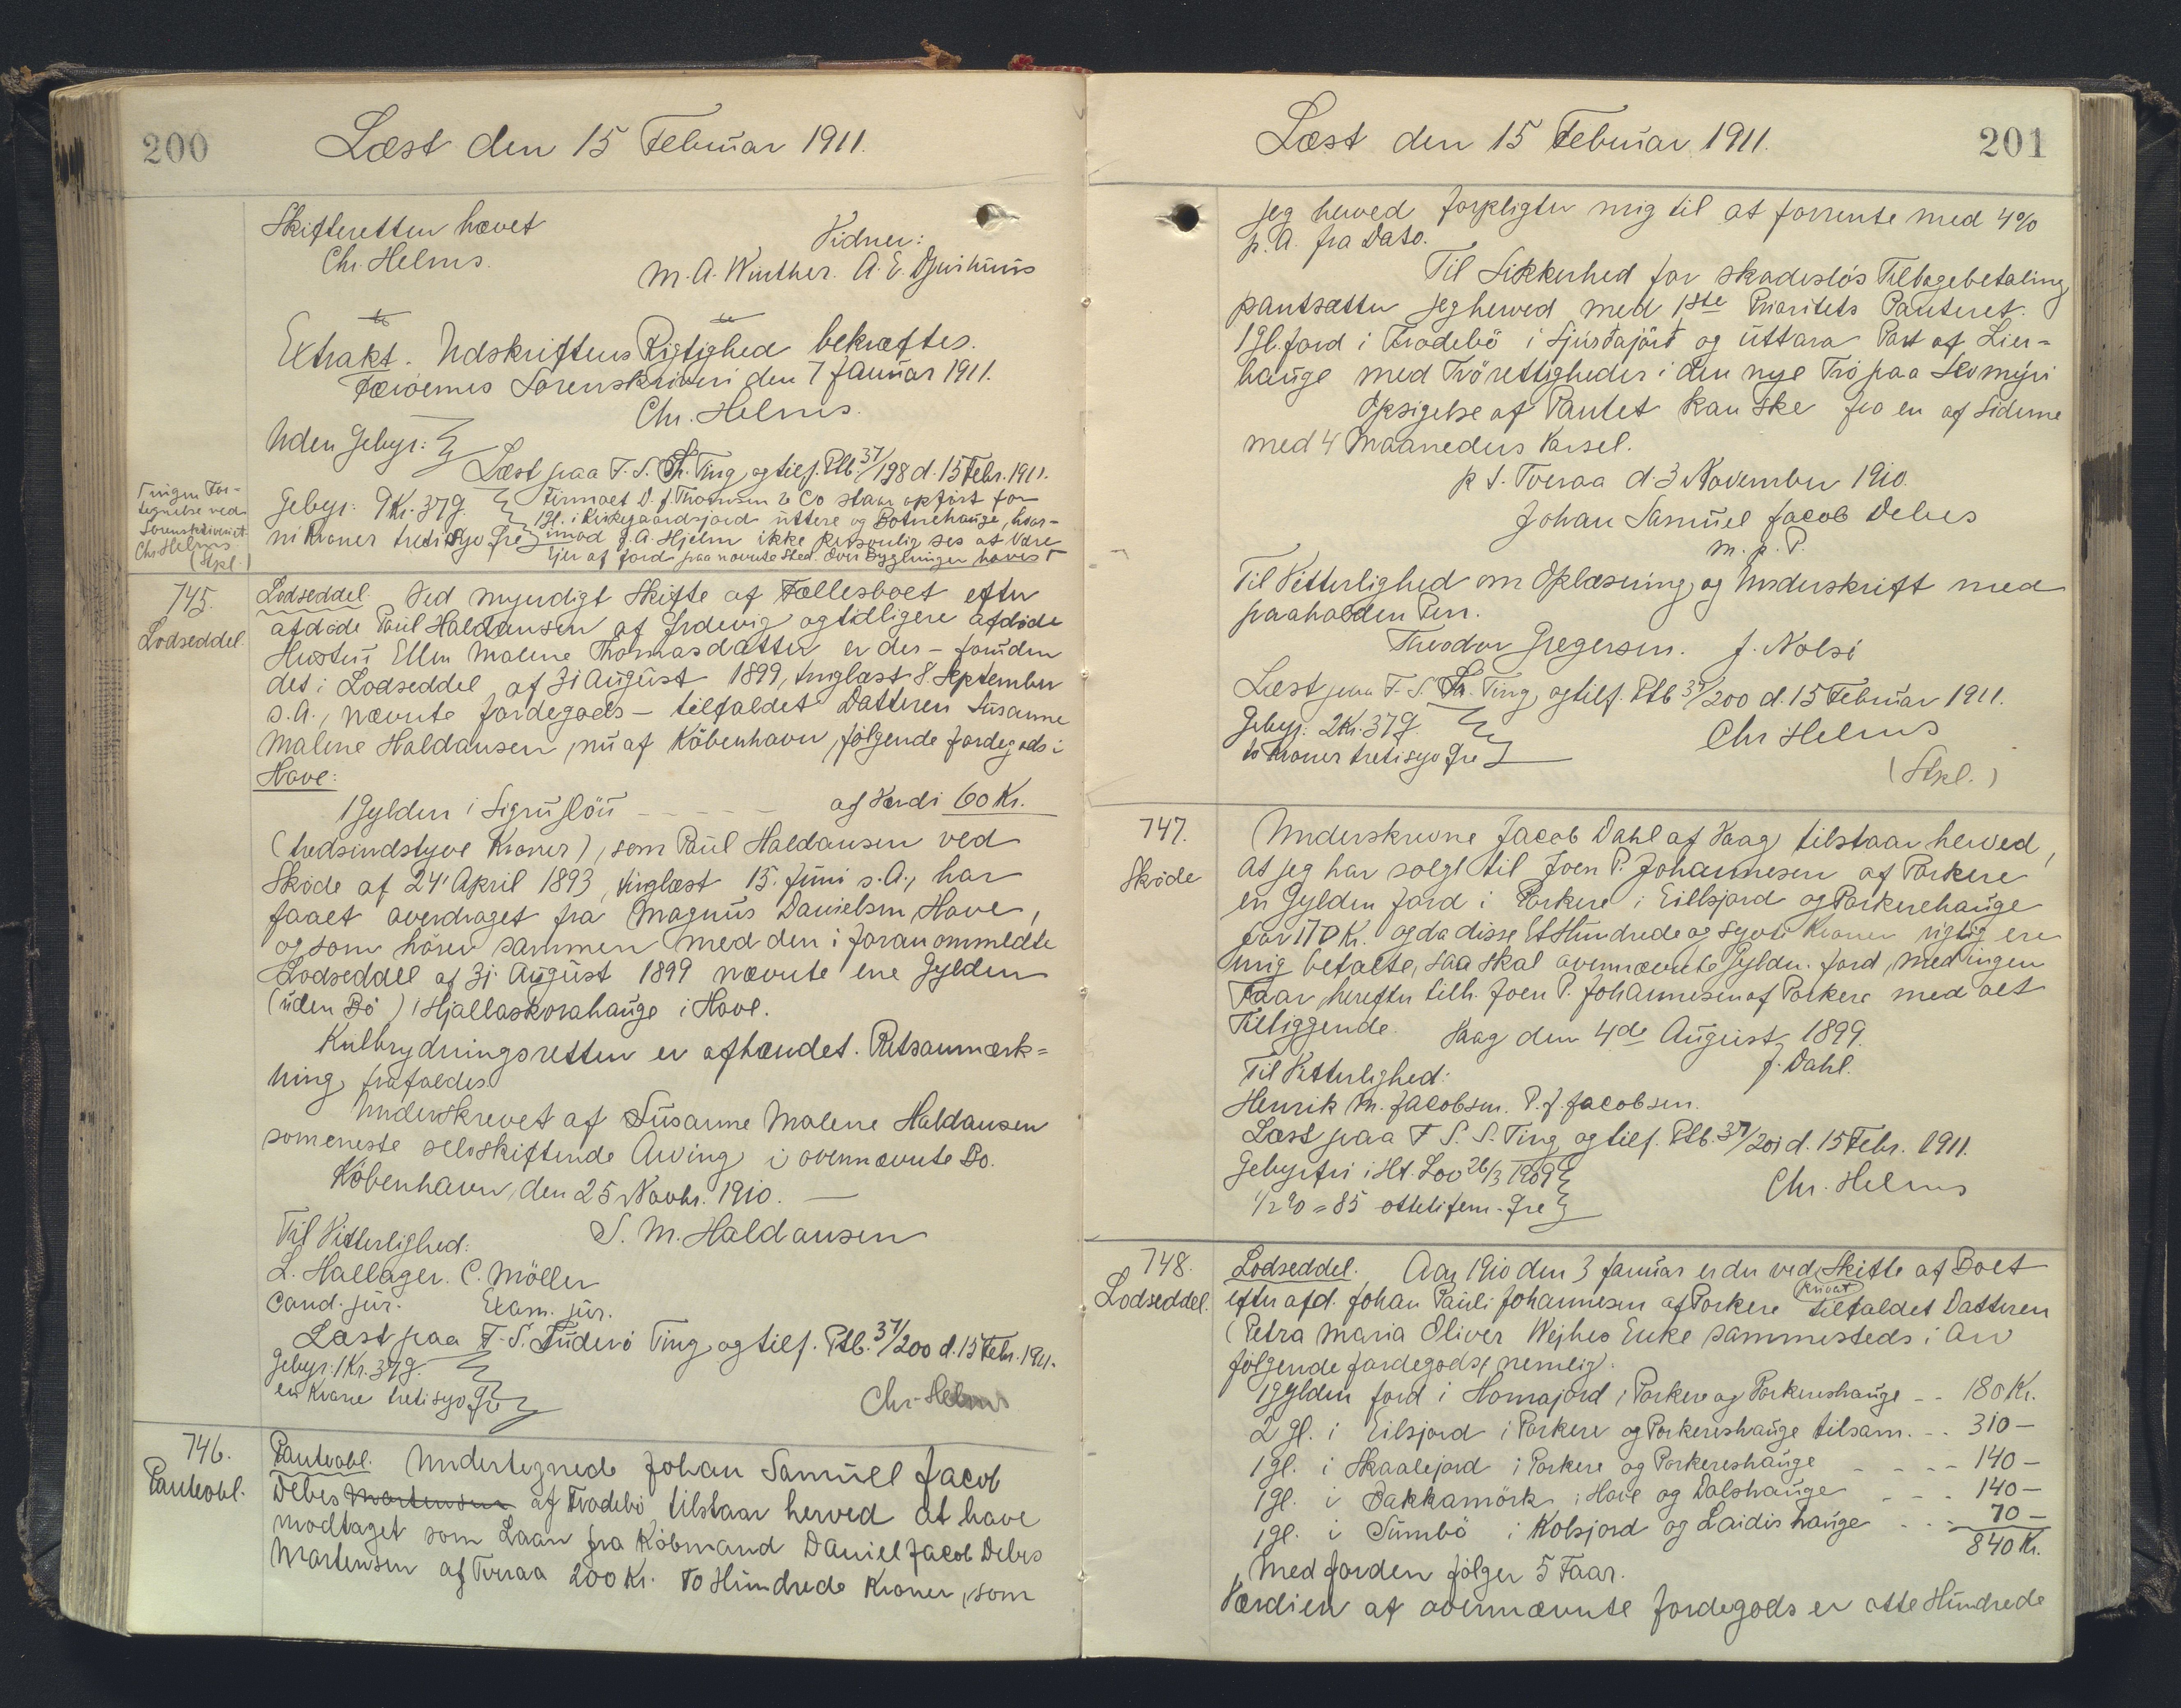 200
Læst den 15 Februar 1911.
Skifteretten hævet
Chr. Helms.
Vidner:
M. A. Winther. A. E. Djurhuus
Extrakt. Udskriftens Rigtighed bekræftes.
Færøernes Sorenskriveri den 7 Januar 1911.
Chr. Helms.
Uden Gebyr:
Læst paa F. S. Sh. Ting og tilf. Ptb. 37/198 d. 15 Febr. 1911.
Tingen For-
tegnelse ved
Sorenskriveriet
Chr Helms
(Stpl.)
Gebyr: 9 Kr. 37 Ø.
ni Kroner treti syv Øre
Firmaet D. J. Thomsen & Co staar opført for
1 Gl. i Kirkegaardsjord uttere og Botnehauge, hvor-
imod J. A. Hjelm ikke personlig ses at være
Ejer af Jord paa nævnte Sted. Over Bygninger haves
745.
Lodseddel.
Lodseddel. Ved myndigt Skifte af Fællesboet efter
afdøde Poul Haldansen af Frodevig og tidligere afdøde
Hustru Ellen Malene Thomasdatter er der - foruden
det i Lodseddel af 31 August 1899, tinglæst 8. September
s. A., nævnte Jordegods - tilfaldet Datteren Susanne
Malene Haldansen, nu af København, følgende Jordegods i
Hove:
1 Gylden i Sigruflöu - - - - af Værdi 60 Kr.
(tredsindstyve Kroner), som Poul Haldansen ved
Skøde af 24' April 1893, tinglæst 15. Juni s. A., har
faaet overdraget fra Magnus Danielsen, Hove,
og som hører sammen med den i foran ommeldte
Lodseddel af 31. August 1899 nævnte ene Gylden
(uden Bø) i Hjallaskorahauge i Hove.
Kulbrydningsretten er afhændet. Retsanmærk=
ning frafaldes.
Underskrevet af Susanne Malene Haldansen
som eneste selvskiftende Arving i ovennævnte Bo.
København, den 25 Novbr. 1910. —
S. M. Haldansen
Til Vitterlighed:
L. Hallager. C. Möller
Cand. jur. Exam. jur.
Læst paa F. S. Suderø Ting og tilf. Ptb. 37/200 d. 15 Febr. 1911.
Gebyr: 1 Kr. 37 Ø.
en Krone treti syv Øre
Chr. Helms
746.
Panteobl.
Panteobl. Undertegnede Johan Samuel Jacob
Debes Mortensen af Frodebø tilstaar herved at have
modtaget som Laan fra Købmand Daniel Jacob Debes
Mortensen af Tveraa 200 Kr. To Hundrede Kroner, som
201
Læst den 15 Februar 1911.
jeg herved forpligter mig til at forrente med 4%
p. A. fra Dato.
Til Sikkerhed for skadesløs Tilbagebetaling
pantsætter jeg herved med 1ste Prioritets Panteret:
1 Gl. Jord i Frodebø i Sjúrðajörð og úttara Part af Lier-
hauge med Tröretttigheder i den nye Trö paa Heomÿri
Opsigelse af Pantet kan ske fra en af Siderne
med 4 Maaneders Varsel.
p. t. Tveraa d. 3 November 1910.
Johan Samuel Jacob Debes
m. p. P.
Til Vitterlighed om Oplæsning og Underskrift med
paaholden Pen.
Theodor Gregersen. J. Nolsö
Læst paa F. S. Sh. Ting og tilf. Ptb 37/200 d. 15 Februar 1911.
Gebyr: 2 Kr. 37 Ø.
to Kroner treti syv Øre
Chr Helms
(Stpl.)
747.
Skøde
Underskrevne Jacob Dahl af Vaag tilstaar herved,
at jeg har solgt til Joen P. Johannesen af Porkere
en Gylden Jord i Porkere i Eillsjord og Porkerehauge
for 170 Kr. og da disse Et Hundrede og syvti Kroner rigtig ere
mig betalte, saa skal ovennævnte Gylden Jord, med ingen
Faar, herefter tilh. Joen P. Johannesen af Porkere med alt
Tilliggende.
Vaag den 4de August 1899.
J. Dahl.
Til Vitterlighed:
Henrik M. Jacobsen. P. J. Jacobsen.
Læst paa F. S. S. Ting og tilf. Ptb. 37/201 d. 15 Febr. 1911.
Gebyrfri i Hl. Lov 26/3 1909
1/2 % = 85 ottetifem. Øre
Chr. Helms
748.
Lodseddel.
Lodseddel. Aar 1910 den 3 Januar er der ved Skifte af Boet
privat
efter afd. Johan Pauli Johannesen af Porkere tilfaldet Datteren
Petra Maria Oliver Wejhes Enke sammesteds i Arv
følgende Jordegods, nemlig:
1 Gylden Jord i Homrajord i Porkere og Porkereshauge - - 180 Kr.
2 Gl. i Eilsjord i Porkere og Porkereshauge tilsam. - - 310 —
1 gl. i Skaalejord i Porkere og Porkereshauge - - - - 140 —
1 gl. i Bakkamörk i Hove og Dalshauge - - - 140 —
1 gl. i Sumbö i Kolsjord og Laidishauge - - - 70 —
840 Kr.
Med Jorden følger 5 Faar.
Værdien af ovennævnte Jordegods er otte Hundrede